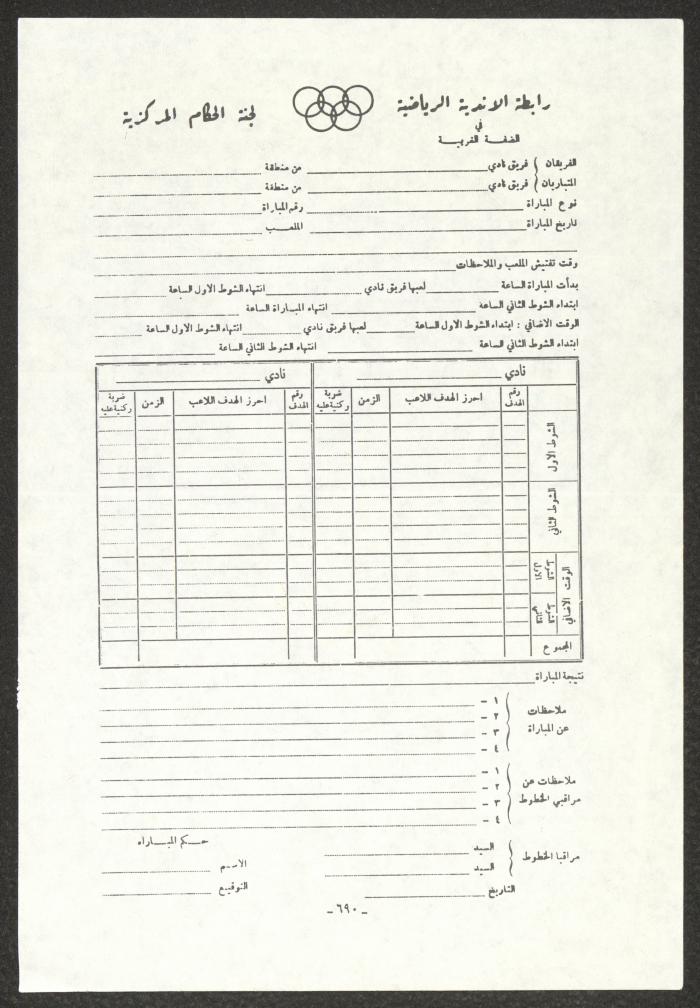 رابطة الاندية الرياضية
في
الضفة الغربية
لجنة الحكام المركزية
الفريقان فريق نادي من منطقة
المتباريان فريق نادي من منطقة
نوع المباراة رقم المباراة
تاريخ المباراة الملعب
وقت تفتيش الملعب والملاحظات
بدأت المباراة الساعة لعبها فريق نادي انتهاء الشوط الاول الساعة
ابتداء الشوط الثاني الساعة انتهاء المباراة الساعة
الوقت الاضافي : ابتداء الشوط الاول الساعة لعبها فريق نادي انتهاء الشوط الاول الساعة
ابتداء الشوط الثاني الساعة انتهاء الشوط الثاني الساعة
نادي نادي
رقم الهدف احرز الهدف اللاعب الزمن ضربة ركنية عليه رقم الهدف احرز الهدف اللاعب الزمن ضربة ركنية عليه
الشوط الاول
الشوط الثاني
الوقت الاضافي
المجموع
نتيجة المباراة
ملاحظات عن المباراة
١ -
٢ -
٣ -
٤ -
ملاحظات عن مراقبي الخطوط
١ -
٢ -
٣ -
٤ -
حكم المباراه
مراقبا الخطوط السيد الاسم
السيد التوقيع
التاريخ
- ٦٩٠ -